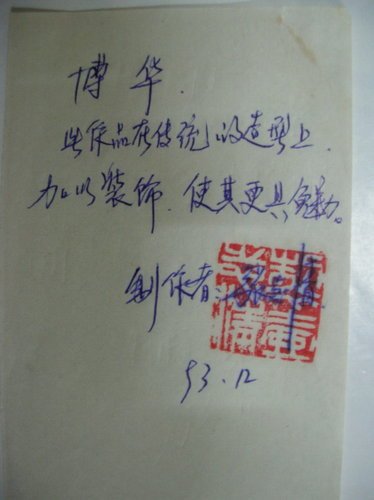 博华.
此作品在传统的造型上.
加以装饰.使其更具魅力。
制作者:
93.12